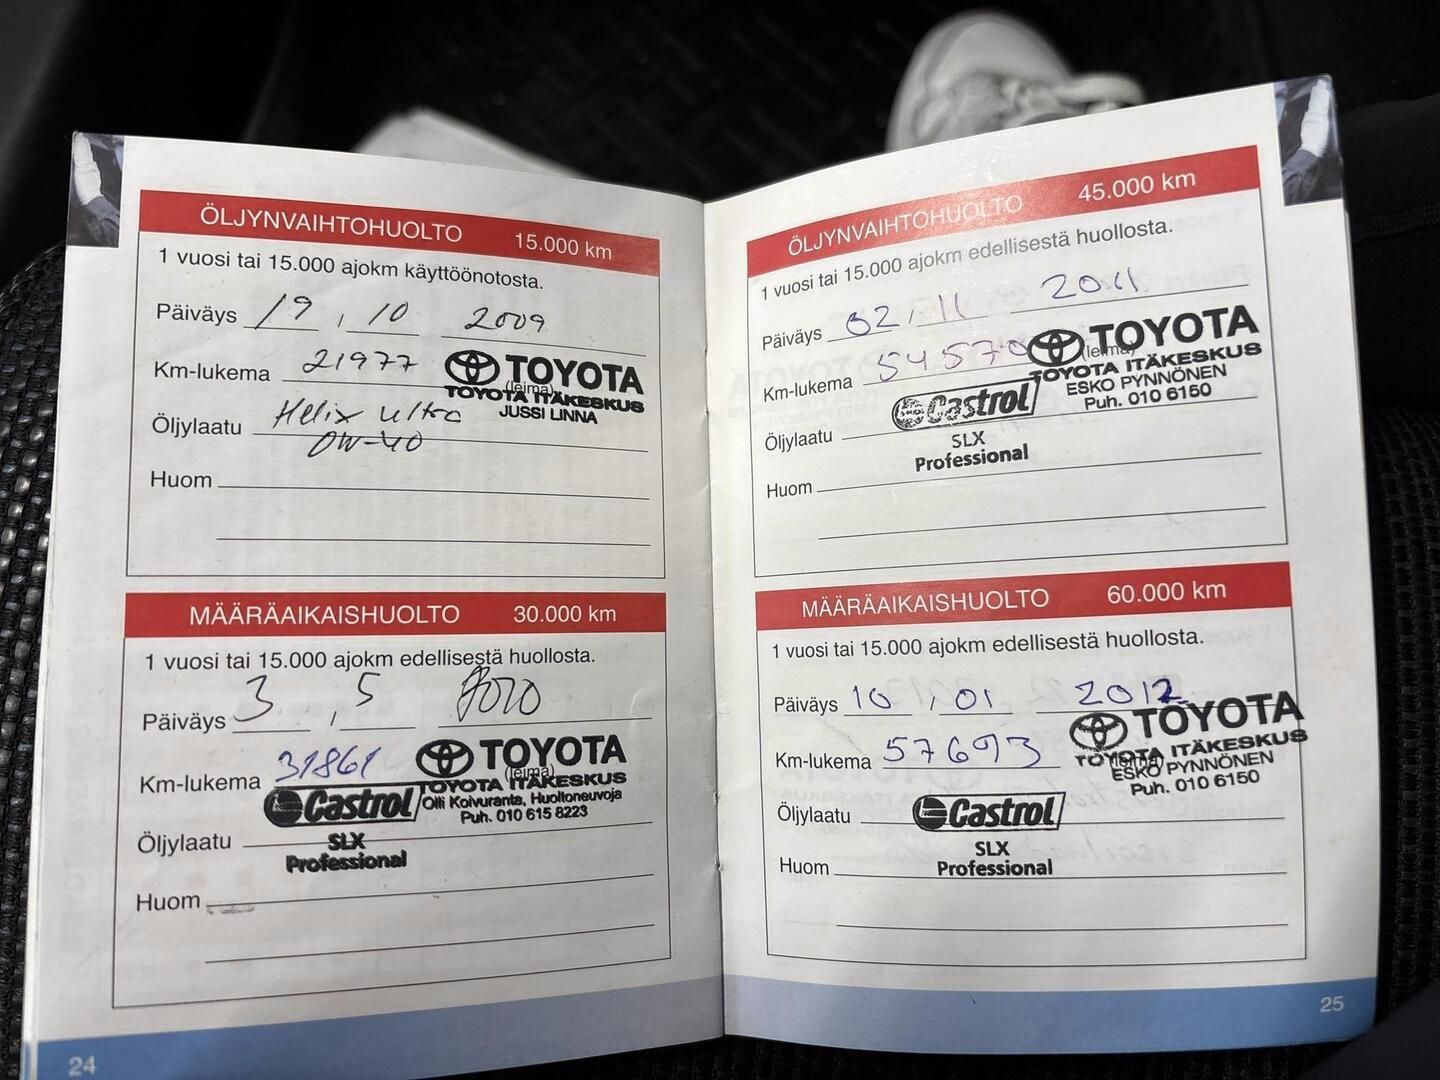 ÖLJYNVAIHTOHUOLTO 15.000 km
1 vuosi tai 15.000 ajokm käyttöönotosta.
Päiväys 19 . 10 2009
Km-lukema 21977
TOYOTA
(leima)
TOYOTA ITÄKESKUS
JUSSI LINNA
Öljylaatu Helix ultra
0W-40
Huom
MÄÄRÄAIKAISHUOLTO 30.000 km
1 vuosi tai 15.000 ajokm edellisestä huollosta.
Päiväys 3 . 5 2010
Km-lukema 31861
TOYOTA
(leima)
TOYOTA ITÄKESKUS
Olli Koivuranta, Huoltoneuvoja
Puh. 010 615 8223
Castrol
Öljylaatu SLX
Professional
Huom
24
ÖLJYNVAIHTOHUOLTO 45.000 km
1 vuosi tai 15.000 ajokm edellisestä huollosta.
Päiväys 02 . 11 2011
Km-lukema 54570
TOYOTA
(leima)
TOYOTA ITÄKESKUS
ESKO PYNNÖNEN
Puh. 010 6150
Castrol
Öljylaatu SLX
Professional
Huom
MÄÄRÄAIKAISHUOLTO 60.000 km
1 vuosi tai 15.000 ajokm edellisestä huollosta.
Päiväys 10 . 01 2012
Km-lukema 57693
TOYOTA
(leima)
TOYOTA ITÄKESKUS
ESKO PYNNÖNEN
Puh. 010 6150
Öljylaatu Castrol
SLX
Professional
Huom
25